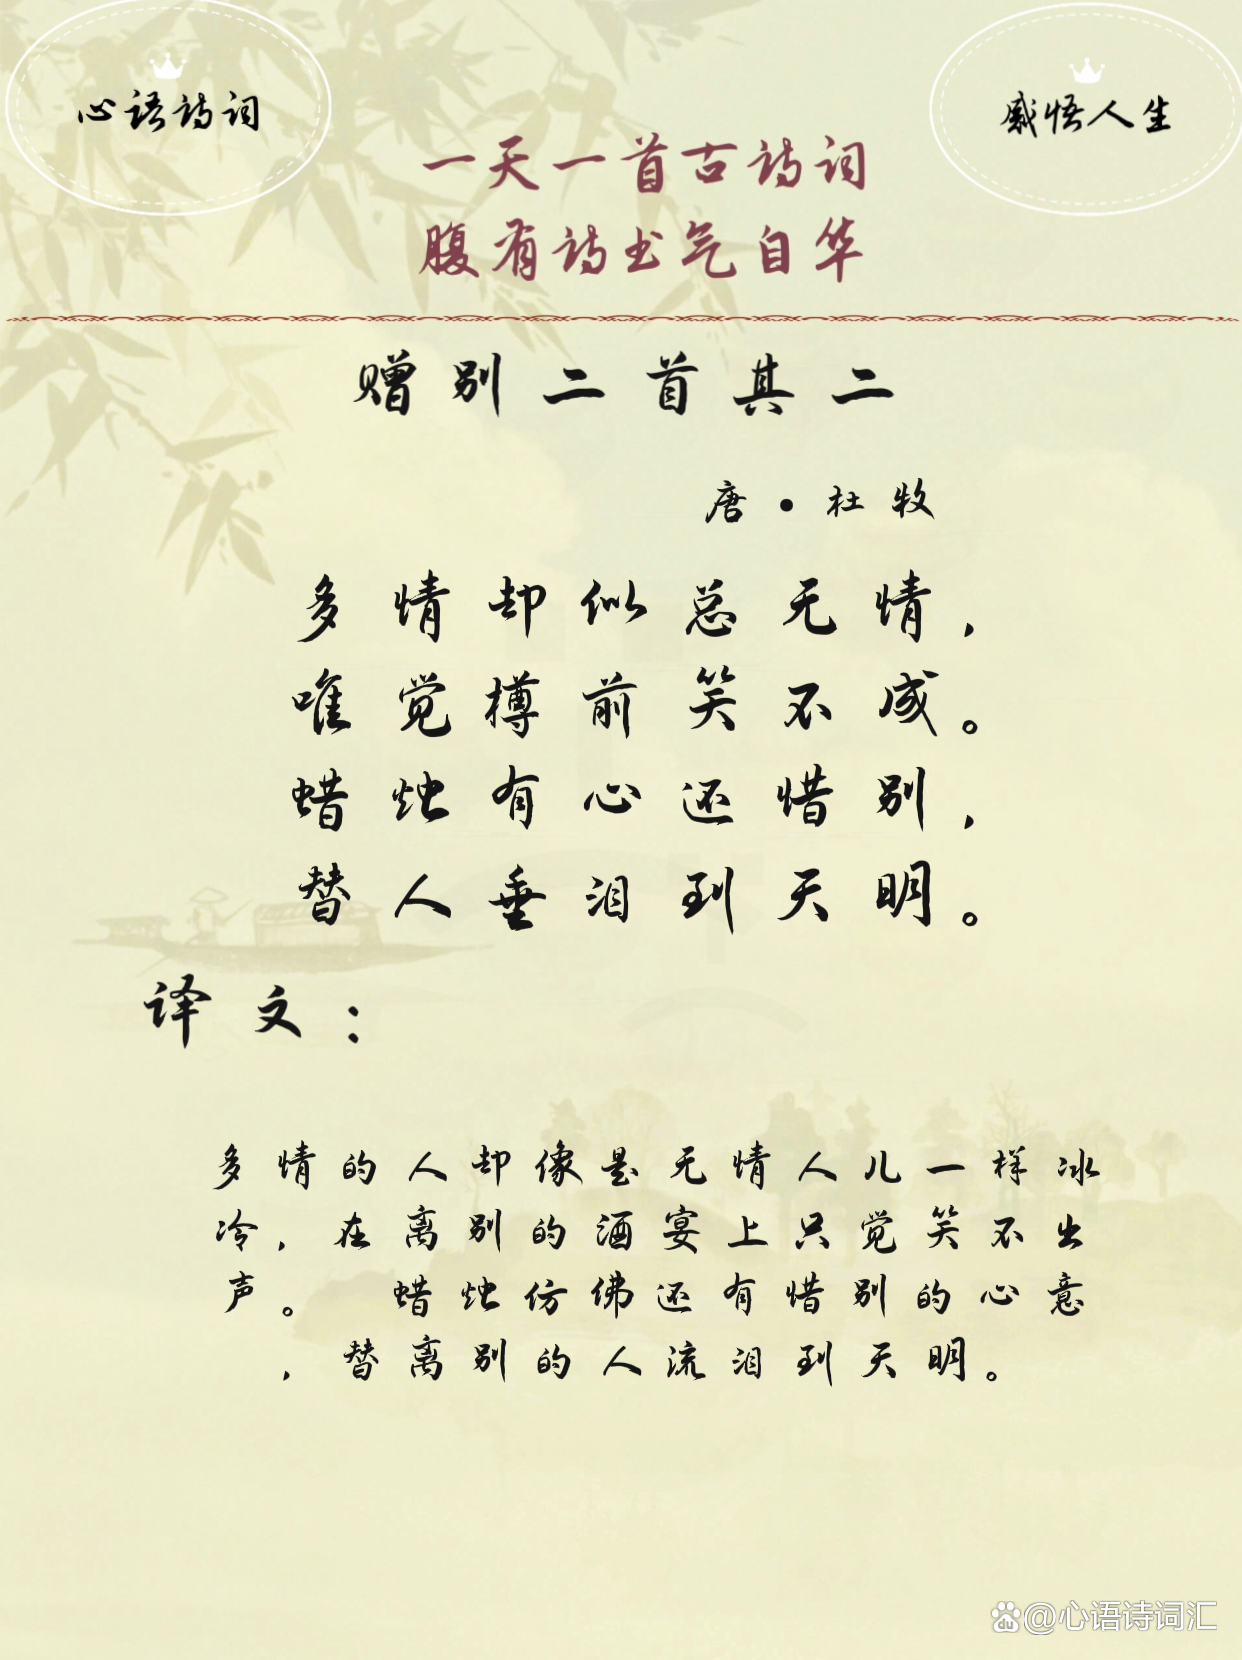 心语诗词
感悟人生
一天一首古诗词
腹有诗书气自华
赠别二首其二
唐·杜牧
多情却似总无情，
唯觉樽前笑不成。
蜡烛有心还惜别，
替人垂泪到天明。
译文：
多情的人却像是无情人儿一样冰
冷，在离别的酒宴上只觉笑不出
声。 蜡烛仿佛还有惜别的心意
，替离别的人流泪到天明。
@心语诗词汇